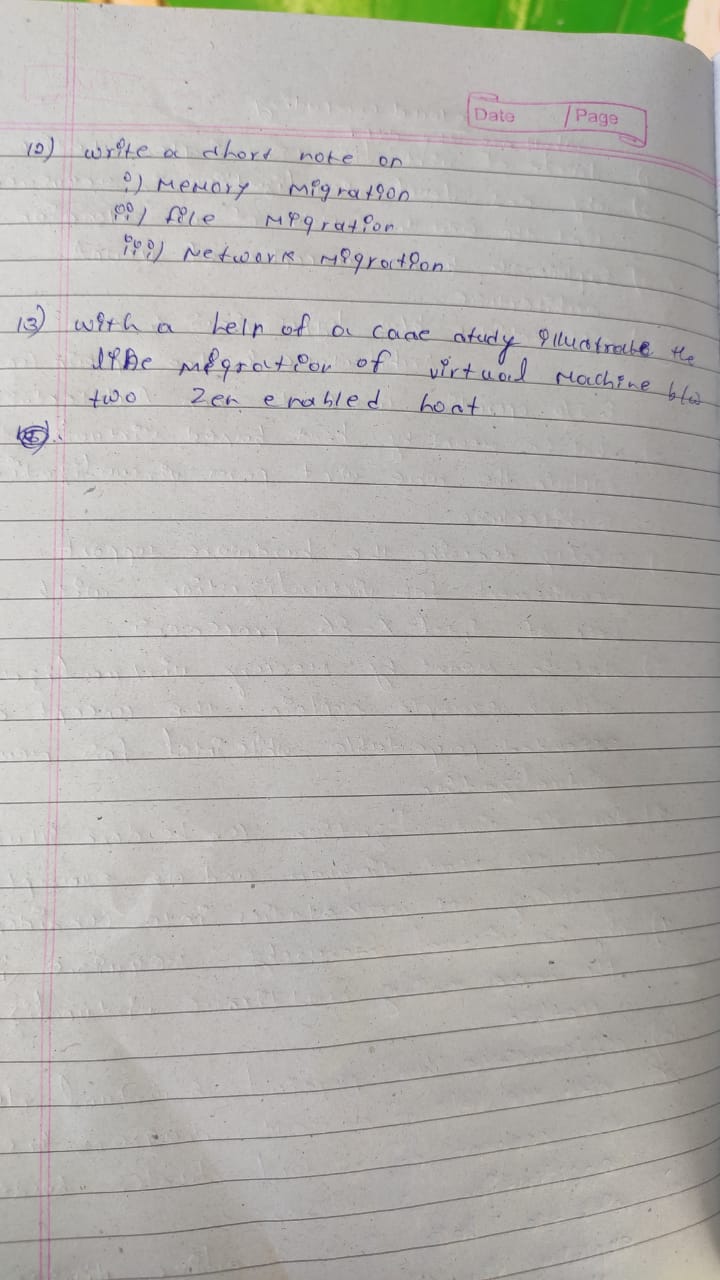 Date / Page
12) write a short note on
i) Memory Migration
ii) file Migration
iii) Network Migration
13) with a help of a case study illustrate the
live migration of virtual Machine b/w
two Zen enabled host